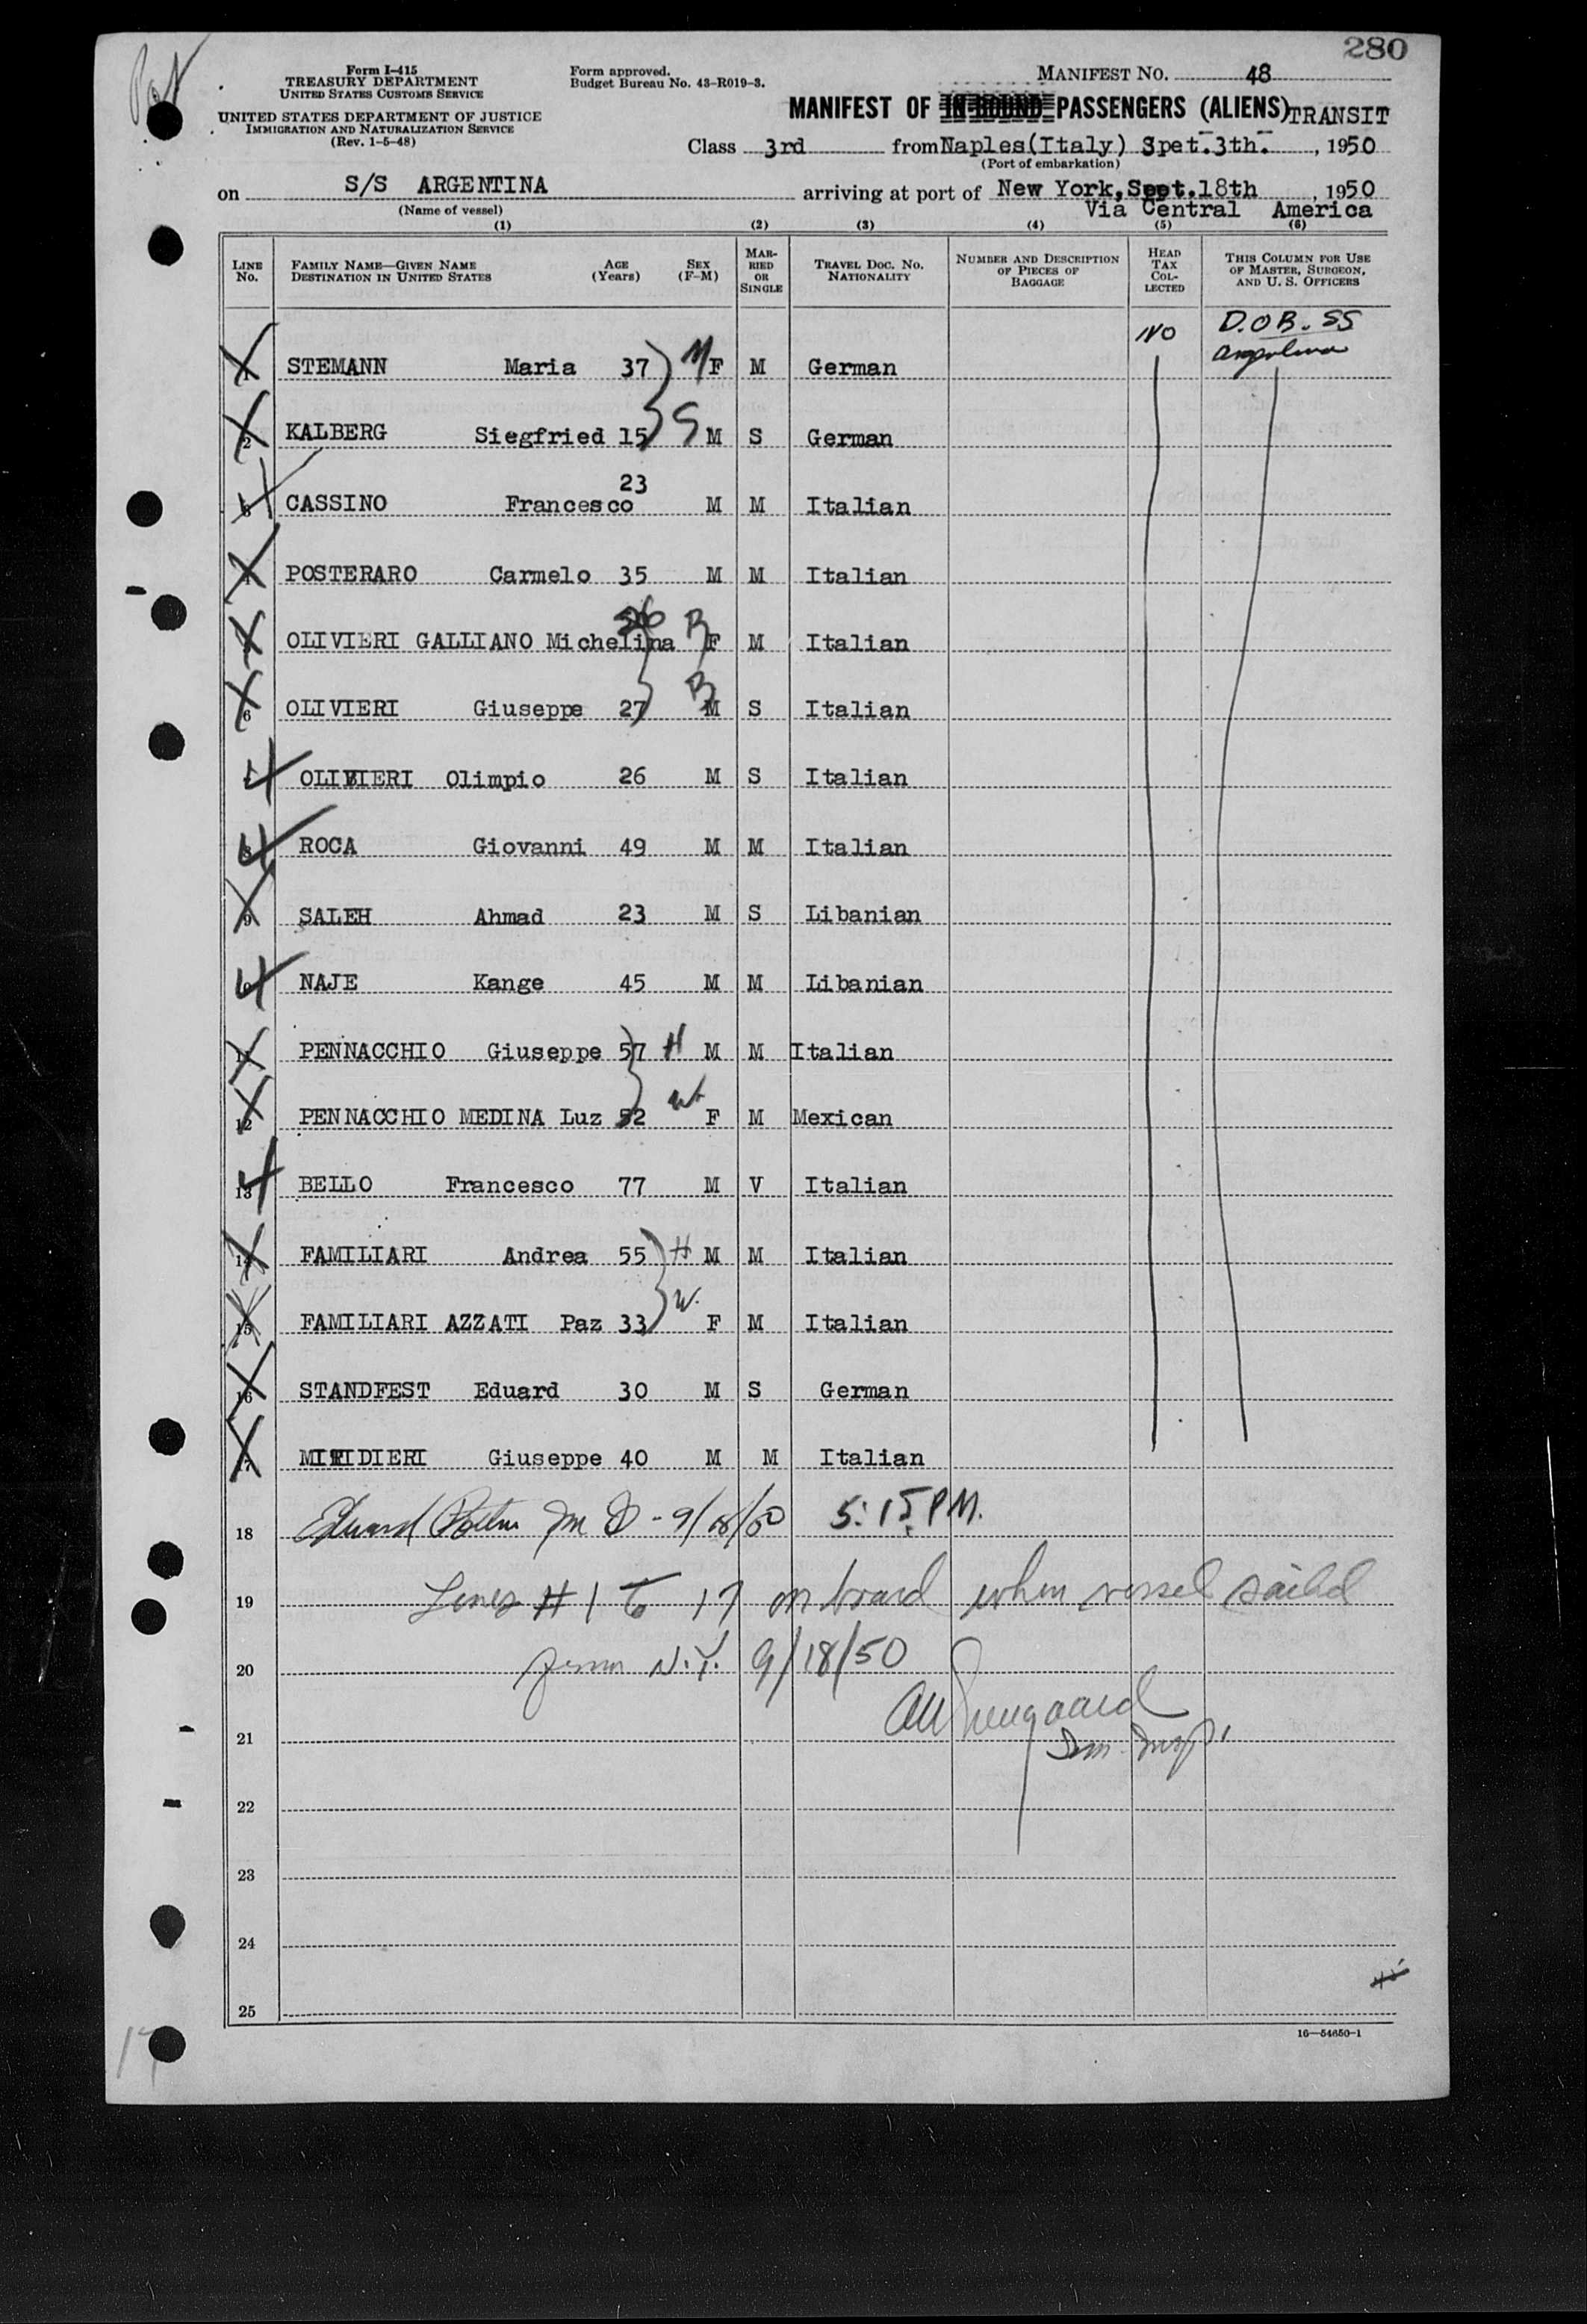 280
Form I-415
TREASURY DEPARTMENT
UNITED STATES CUSTOMS SERVICE
UNITED STATES DEPARTMENT OF JUSTICE
IMMIGRATION AND NATURALIZATION SERVICE
(Rev. 1-5-48)
Form approved.
Budget Bureau No. 43-R019-3.
MANIFEST NO. 48
MANIFEST OF IN-BOUND PASSENGERS (ALIENS) TRANSIT
Class 3rd from Naples(Italy) Spet.3th. , 1950
(Port of embarkation)
on S/S ARGENTINA arriving at port of New York, Sept.18th , 1950
(Name of vessel) Via Central America
(1) (2) (3) (4) (5) (6)
LINE No. FAMILY NAME—GIVEN NAME DESTINATION IN UNITED STATES AGE (Years) SEX (F-M) MARRIED OR SINGLE TRAVEL DOC. NO. NATIONALITY NUMBER AND DESCRIPTION OF PIECES OF BAGGAGE HEAD TAX COLLECTED THIS COLUMN FOR USE OF MASTER, SURGEON, AND U. S. OFFICERS
NO D.O.B. SS
1 STEMANN Maria 37 M F M German
2 KALBERG Siegfried 15 S M S German
23
3 CASSINO Francesco M M Italian
4 POSTERARO Carmelo 35 M M Italian
26
5 OLIVIERI GALLIANO Michelina B F M Italian
6 OLIVIERI Giuseppe 27 B M S Italian
7 OLIVIERI Olimpio 26 M S Italian
8 ROCA Giovanni 49 M M Italian
9 SALEH Ahmad 23 M S Libanian
10 NAJE Kange 45 M M Libanian
11 PENNACCHIO Giuseppe 57 H M M Italian
12 PENNACCHIO MEDINA Luz 52 W. F M Mexican
13 BELLO Francesco 77 M V Italian
14 FAMILIARI Andrea 55 H M M Italian
15 FAMILIARI AZZATI Paz 33 W. F M Italian
16 STANDFEST Eduard 30 M S German
17 Giuseppe 40 M M Italian
18 Eduard M D - 9/18/50 5:15 PM.
19 Lines # 1 to 17 on board when vessel sailed
20 from N.Y. 9/18/50
21 Imm. Insp.
22
23
24
25
16—54650-1
17